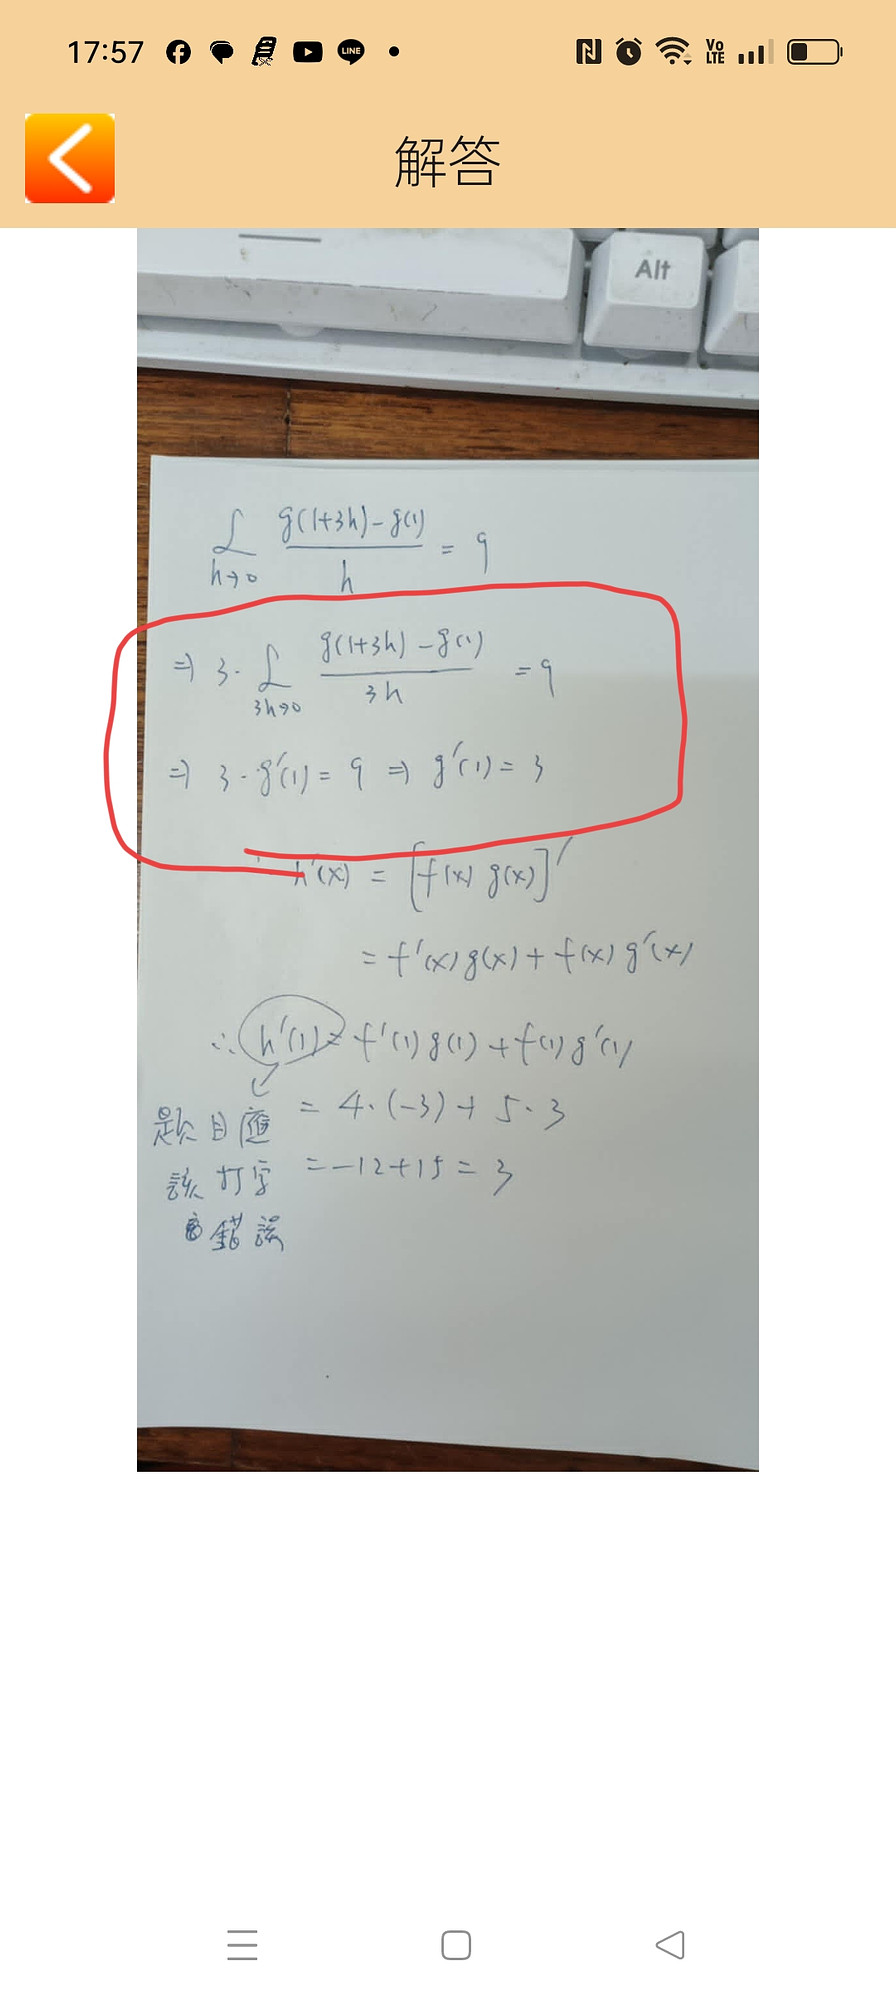 17:57 LINE Vo LTE
解答
Alt
L h→0 g(1+3h)-g(1) / h = 9
⇒ 3·L 3h→0 g(1+3h)-g(1) / 3h = 9
⇒ 3·g'(1) = 9 ⇒ g'(1) = 3
h'(x) = [f(x) g(x)]'
= f'(x)g(x) + f(x)g'(x)
∴ h'(1) = f'(1)g(1) + f(1)g'(1)
= 4·(-3) + 5·3
= -12+15 = 3
題目應
該打字
錯誤